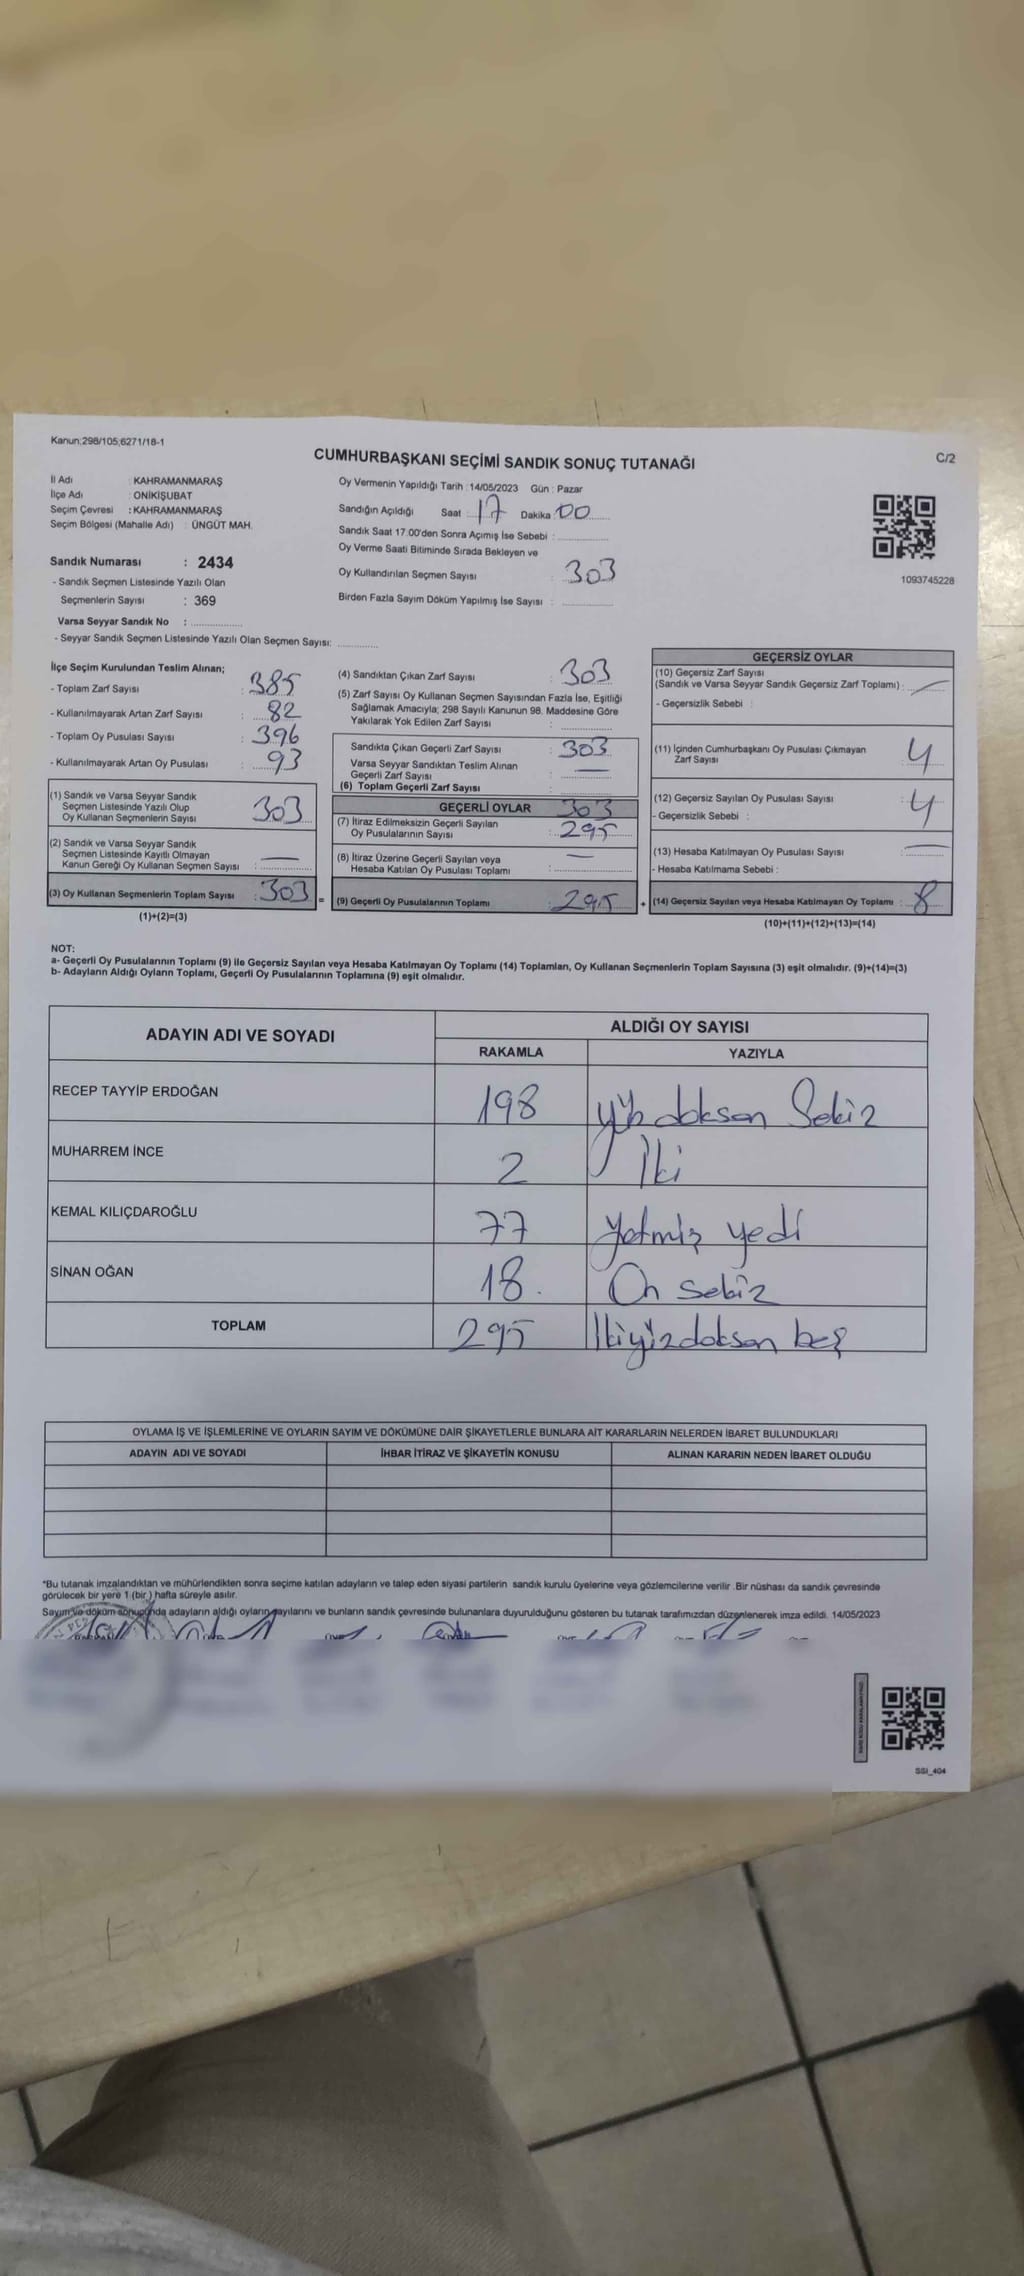 Kanun:298/105,6271/18-1
CUMHURBAŞKANI SEÇİMİ SANDIK SONUÇ TUTANAĞI
C/2
İl Adı : KAHRAMANMARAŞ
İlçe Adı : ONİKİŞUBAT
Seçim Çevresi : KAHRAMANMARAŞ
Seçim Bölgesi (Mahalle Adı) : ÜNGÜT MAH.
Sandık Numarası : 2434
- Sandık Seçmen Listesinde Yazılı Olan
Seçmenlerin Sayısı : 369
Varsa Seyyar Sandık No :
- Seyyar Sandık Seçmen Listesinde Yazılı Olan Seçmen Sayısı:
Oy Vermenin Yapıldığı Tarih : 14/05/2023 Gün : Pazar
Sandığın Açıldığı Saat : 17 Dakika : 00
Sandık Saat 17.00'den Sonra Açımış İse Sebebi :
Oy Verme Saati Bitiminde Sırada Bekleyen ve
Oy Kullandırılan Seçmen Sayısı : 303
Birden Fazla Sayım Döküm Yapılmış İse Sayısı :
1093745228
İlçe Seçim Kurulundan Teslim Alınan;
- Toplam Zarf Sayısı : 385
- Kullanılmayarak Artan Zarf Sayısı : 82
- Toplam Oy Pusulası Sayısı : 396
- Kullanılmayarak Artan Oy Pusulası : 93
(1) Sandık ve Varsa Seyyar Sandık
Seçmen Listesinde Yazılı Olup
Oy Kullanan Seçmenlerin Sayısı : 303
(2) Sandık ve Varsa Seyyar Sandık
Seçmen Listesinde Kayıtlı Olmayan
Kanun Gereği Oy Kullanan Seçmen Sayısı : —
(3) Oy Kullanan Seçmenlerin Toplam Sayısı : 303 =
(1)+(2)=(3)
(4) Sandıktan Çıkan Zarf Sayısı : 303
(5) Zarf Sayısı Oy Kullanan Seçmen Sayısından Fazla İse, Eşitliği
Sağlamak Amacıyla; 298 Sayılı Kanunun 98. Maddesine Göre
Yakılarak Yok Edilen Zarf Sayısı :
Sandıkta Çıkan Geçerli Zarf Sayısı : 303
Varsa Seyyar Sandıktan Teslim Alınan
Geçerli Zarf Sayısı : —
(6) Toplam Geçerli Zarf Sayısı :
GEÇERLİ OYLAR 303
(7) İtiraz Edilmeksizin Geçerli Sayılan
Oy Pusulalarının Sayısı : 295
(8) İtiraz Üzerine Geçerli Sayılan veya
Hesaba Katılan Oy Pusulası Toplamı : —
(9) Geçerli Oy Pusulalarının Toplamı : 295 +
GEÇERSİZ OYLAR
(10) Geçersiz Zarf Sayısı
(Sandık ve Varsa Seyyar Sandık Geçersiz Zarf Toplamı) : —
- Geçersizlik Sebebi :
(11) İçinden Cumhurbaşkanı Oy Pusulası Çıkmayan
Zarf Sayısı : 4
(12) Geçersiz Sayılan Oy Pusulası Sayısı : 4
- Geçersizlik Sebebi :
(13) Hesaba Katılmayan Oy Pusulası Sayısı : —
- Hesaba Katılmama Sebebi :
(14) Geçersiz Sayılan veya Hesaba Katılmayan Oy Toplamı : 8
(10)+(11)+(12)+(13)=(14)
NOT:
a- Geçerli Oy Pusulalarının Toplamı (9) ile Geçersiz Sayılan veya Hesaba Katılmayan Oy Toplamı (14) Toplamları, Oy Kullanan Seçmenlerin Toplam Sayısına (3) eşit olmalıdır. (9)+(14)=(3)
b- Adayların Aldığı Oyların Toplamı, Geçerli Oy Pusulalarının Toplamına (9) eşit olmalıdır.
ADAYIN ADI VE SOYADI ALDIĞI OY SAYISI
RAKAMLA YAZIYLA
RECEP TAYYİP ERDOĞAN 198 yüz doksan Sekiz
MUHARREM İNCE 2 İki
KEMAL KILIÇDAROĞLU 77 yetmiş yedi
SİNAN OĞAN 18. On sekiz
TOPLAM 295 İkiyüzdoksan beş
OYLAMA İŞ VE İŞLEMLERİNE VE OYLARIN SAYIM VE DÖKÜMÜNE DAİR ŞİKAYETLERLE BUNLARA AİT KARARLARIN NELERDEN İBARET BULUNDUKLARI
ADAYIN ADI VE SOYADI İHBAR İTİRAZ VE ŞİKAYETİN KONUSU ALINAN KARARIN NEDEN İBARET OLDUĞU
*Bu tutanak imzalandıktan ve mühürlendikten sonra seçime katılan adayların ve talep eden siyasi partilerin sandık kurulu üyelerine veya gözlemcilerine verilir .Bir nüshası da sandık çevresinde
görülecek bir yere 1 (bir ) hafta süreyle asılır.
Sayım ve döküm sonucunda adayların aldığı oyların sayılarını ve bunların sandık çevresinde bulunanlara duyurulduğunu gösteren bu tutanak tarafımızdan düzenlenerek imza edildi. 14/05/2023
SSI_404